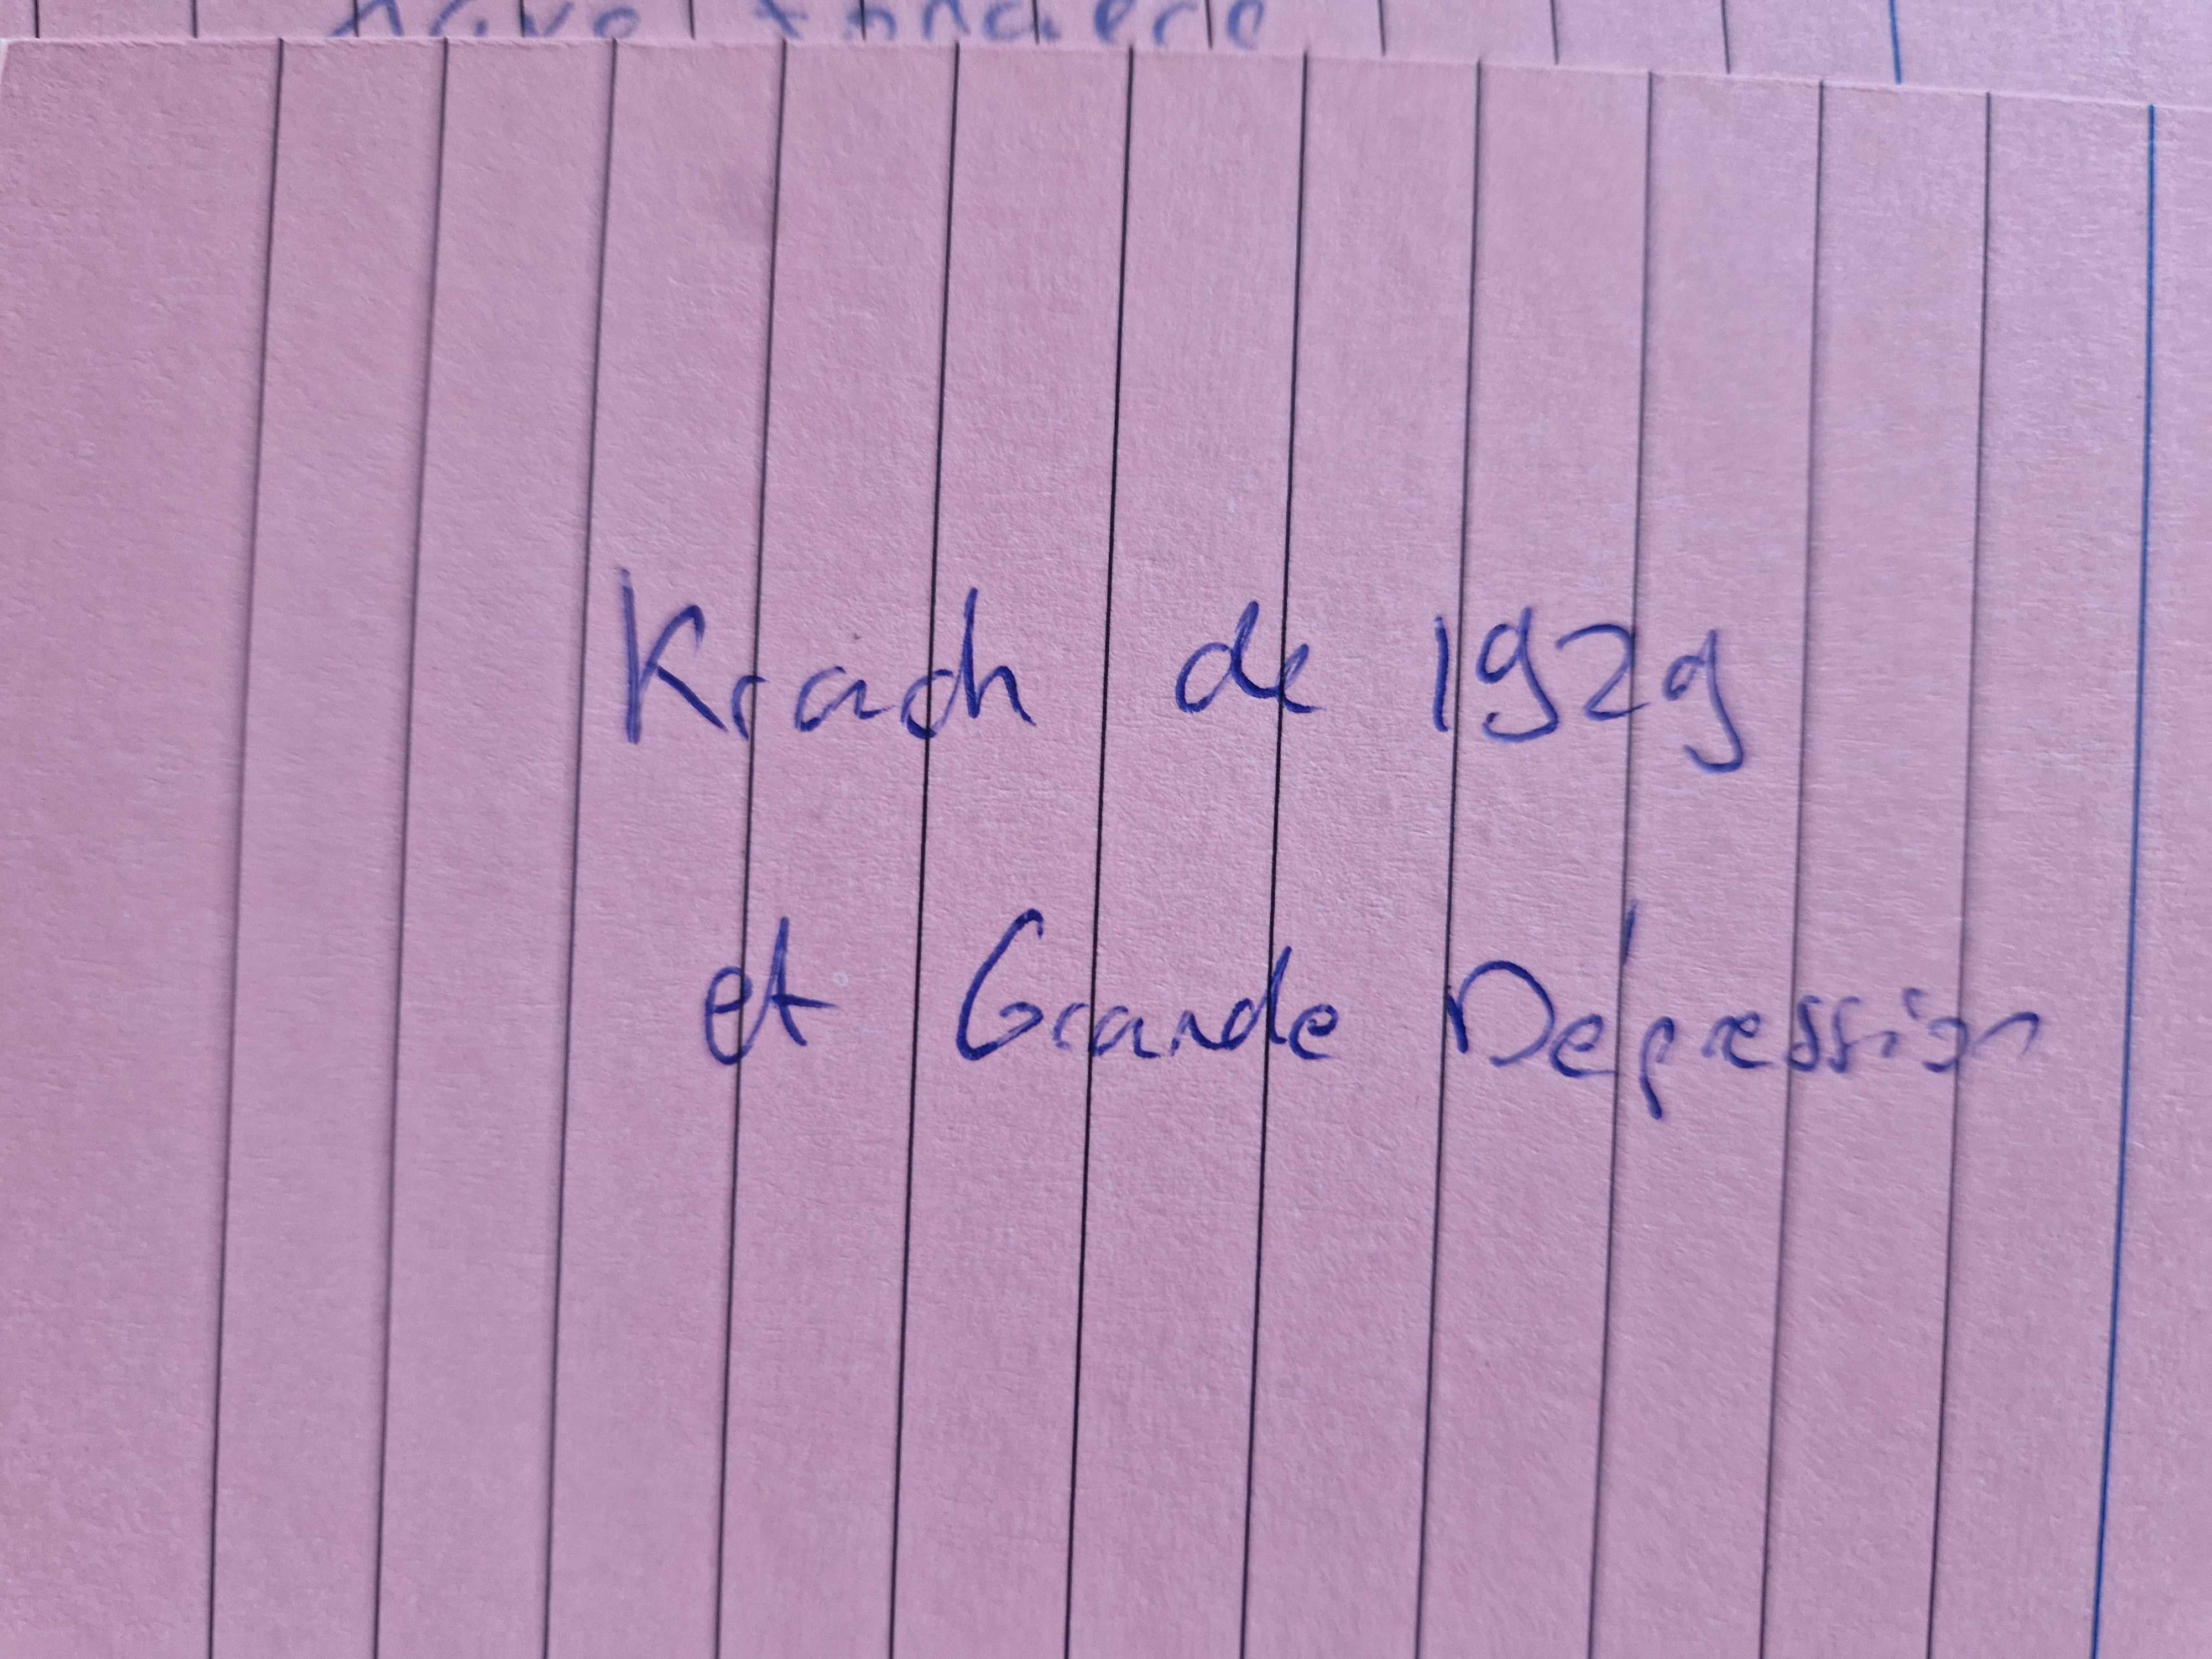 Krach de 1929
et Grande Dépression